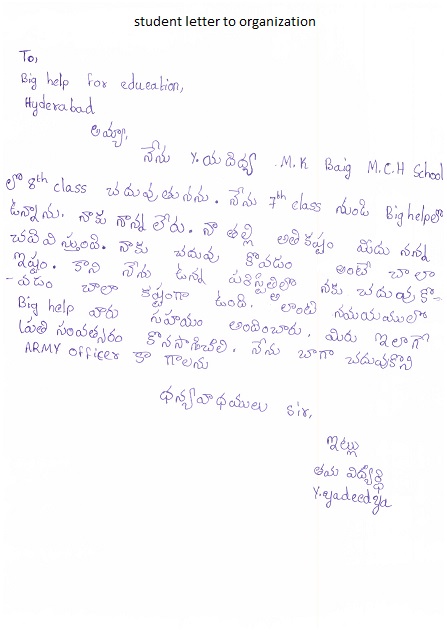 student letter to organization
To,
Big help for education,
Hyderabad
అయ్యా,
నేను Y.యదిద్య .M.K Baig M.C.H School
లో 8th class చదువుతునను. నేను 7th class నుండి Big helpలో
ఉన్నాను. నాకు నాన్న లేరు. నా తల్లి అతికష్టం మీదు నన్న
చదివిస్తుంది. నాకు చదువు కోవడం అంటే చాలా
ఇష్టం. కాని నేను ఉన్న పరిస్తితిలో నకు చదువు కో-
-వడం చాలా కష్టంగా ఉంది. అలాంటి సమయములో
Big help వారు సహాయం అందించారు. మీరు ఇలాగే
ప్రతి సంవత్సరం కొనసాగించాలి. నేను బాగా చదువుకొని
ARMY officer కా గాలను
ధన్యవాధములు sir,
ఇట్లు
తమ విద్యర్ధి
Y.yadeedya